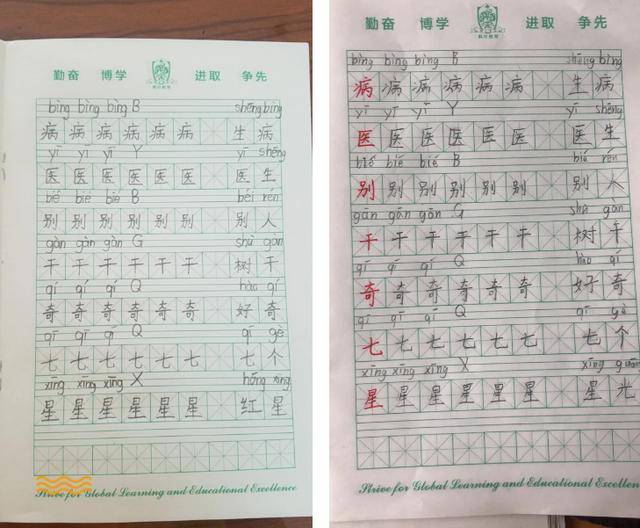 勤奋 博学 进取 争先
bìng bìng bìng B shēng bìng
病 病 病 病 病 病 生 病
yī yī yī Y yī shēng
医 医 医 医 医 医 医 生
bié bié bié B béi rén
别 别 别 别 别 别 别 人
gàn gàn gàn G shù gàn
干 干 干 干 干 干 树 干
qí qí qí Q hào qí
奇 奇 奇 奇 奇 奇 好 奇
qī qī qī Q qī gè
七 七 七 七 七 七 七 个
xīng xīng xīng X hóng xīng
星 星 星 星 星 星 红 星
Strive for Global Learning and Educational Excellence
勤奋 博学 进取 争先
bìng bìng bìng B shēng bìng
病 病 病 病 病 病 生 病
yī yī yī Y yī shēng
医 医 医 医 医 医 医 生
bié bié bié B bié rén
别 别 别 别 别 别 别 人
gān gān gān G shù gàn
干 干 干 干 干 干 树 干
qí qí qí Q hào qí
奇 奇 奇 奇 奇 奇 好 奇
qī qī qī Q qī gè
七 七 七 七 七 七 七 个
xīng xīng xīng X xīng
星 星 星 星 星 星 星 光
Strive for Global Learning and Educational Excellence